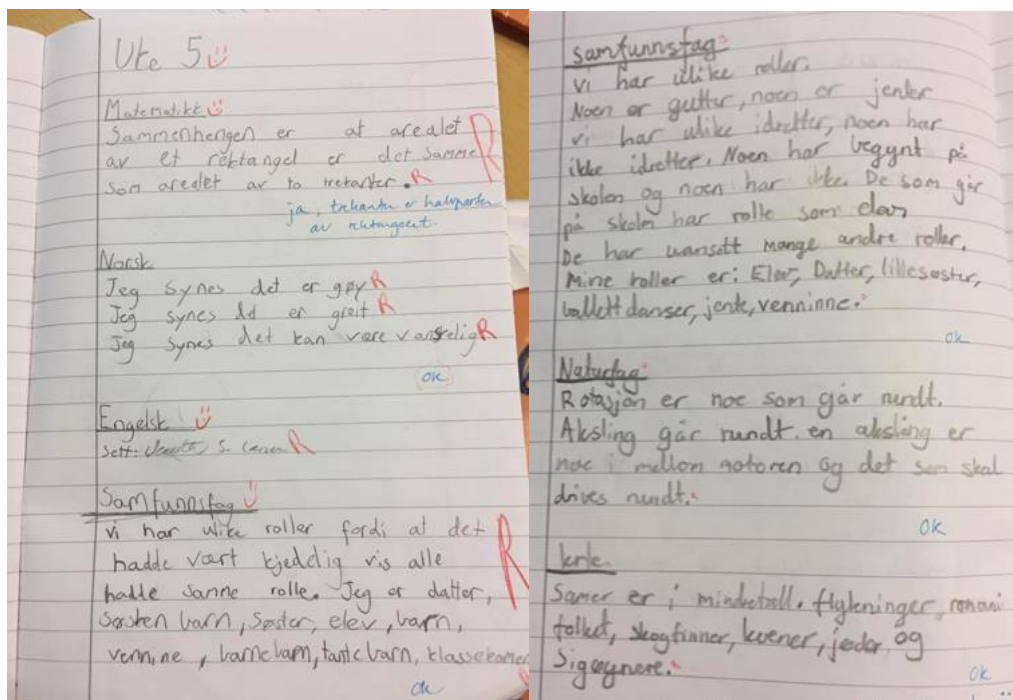 Uke 5
Matematikk
Sammenhengen er at arealet
av et rektangel er det samme
som arealet av to trekanter. R
R
ja, trekanten er halvparten
av rektangelet.
Norsk
Jeg synes det er gøy R
Jeg synes dd er greit R
Jeg synes det kan være vanskelig R
ok
Engelsk
Sett: S. R
Samfunnsfag
Vi har ulike roller fordi at det
hadde vært kjeddelig vis alle
hadde samme rolle. Jeg er datter,
R
Søsken barn, Søster, elev, barn,
vennine, barnebarn, tante barn, klassekamerat
ok
samfunnsfag
Vi har ulike roller.
Noen er gutter, noen er jenter
vi har ulike idretter, noen har
ikke idretter. Noen har begynt på
skolen og noen har ikke. De som går
på skolen har rolle som elev
De har uansett mange andre roller.
Mine roller er: Elev, Datter, lillesøster,
ballett danser, jente, venninne.
ok
Naturfag
Rotasjon er noe som går rundt.
Aksling går rundt. en aksling er
noe i mellom motoren og det som skal
drives rundt.
ok
krle
Samer er i mindretall. flyktninger, romani
folket, skogfinner, kvener, jøder og
Sigøynere.
ok